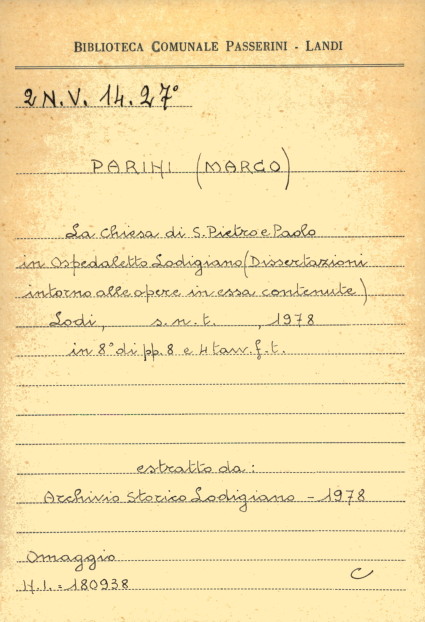 BIBLIOTECA COMUNALE PASSERINI - LANDI
2 N.V. 14.27°
PARINI (MARCO)
La Chiesa di S. Pietro e Paolo
in Ospedaletto Lodigiano (Dissertazioni
intorno alle opere in essa contenute)
Lodi, s.n.t., 1978
in 8° di pp. 8 e 4 tavv. f.t.
estratto da:
Archivio Storico Lodigiano - 1978
Omaggio
N.I. = 180938
C